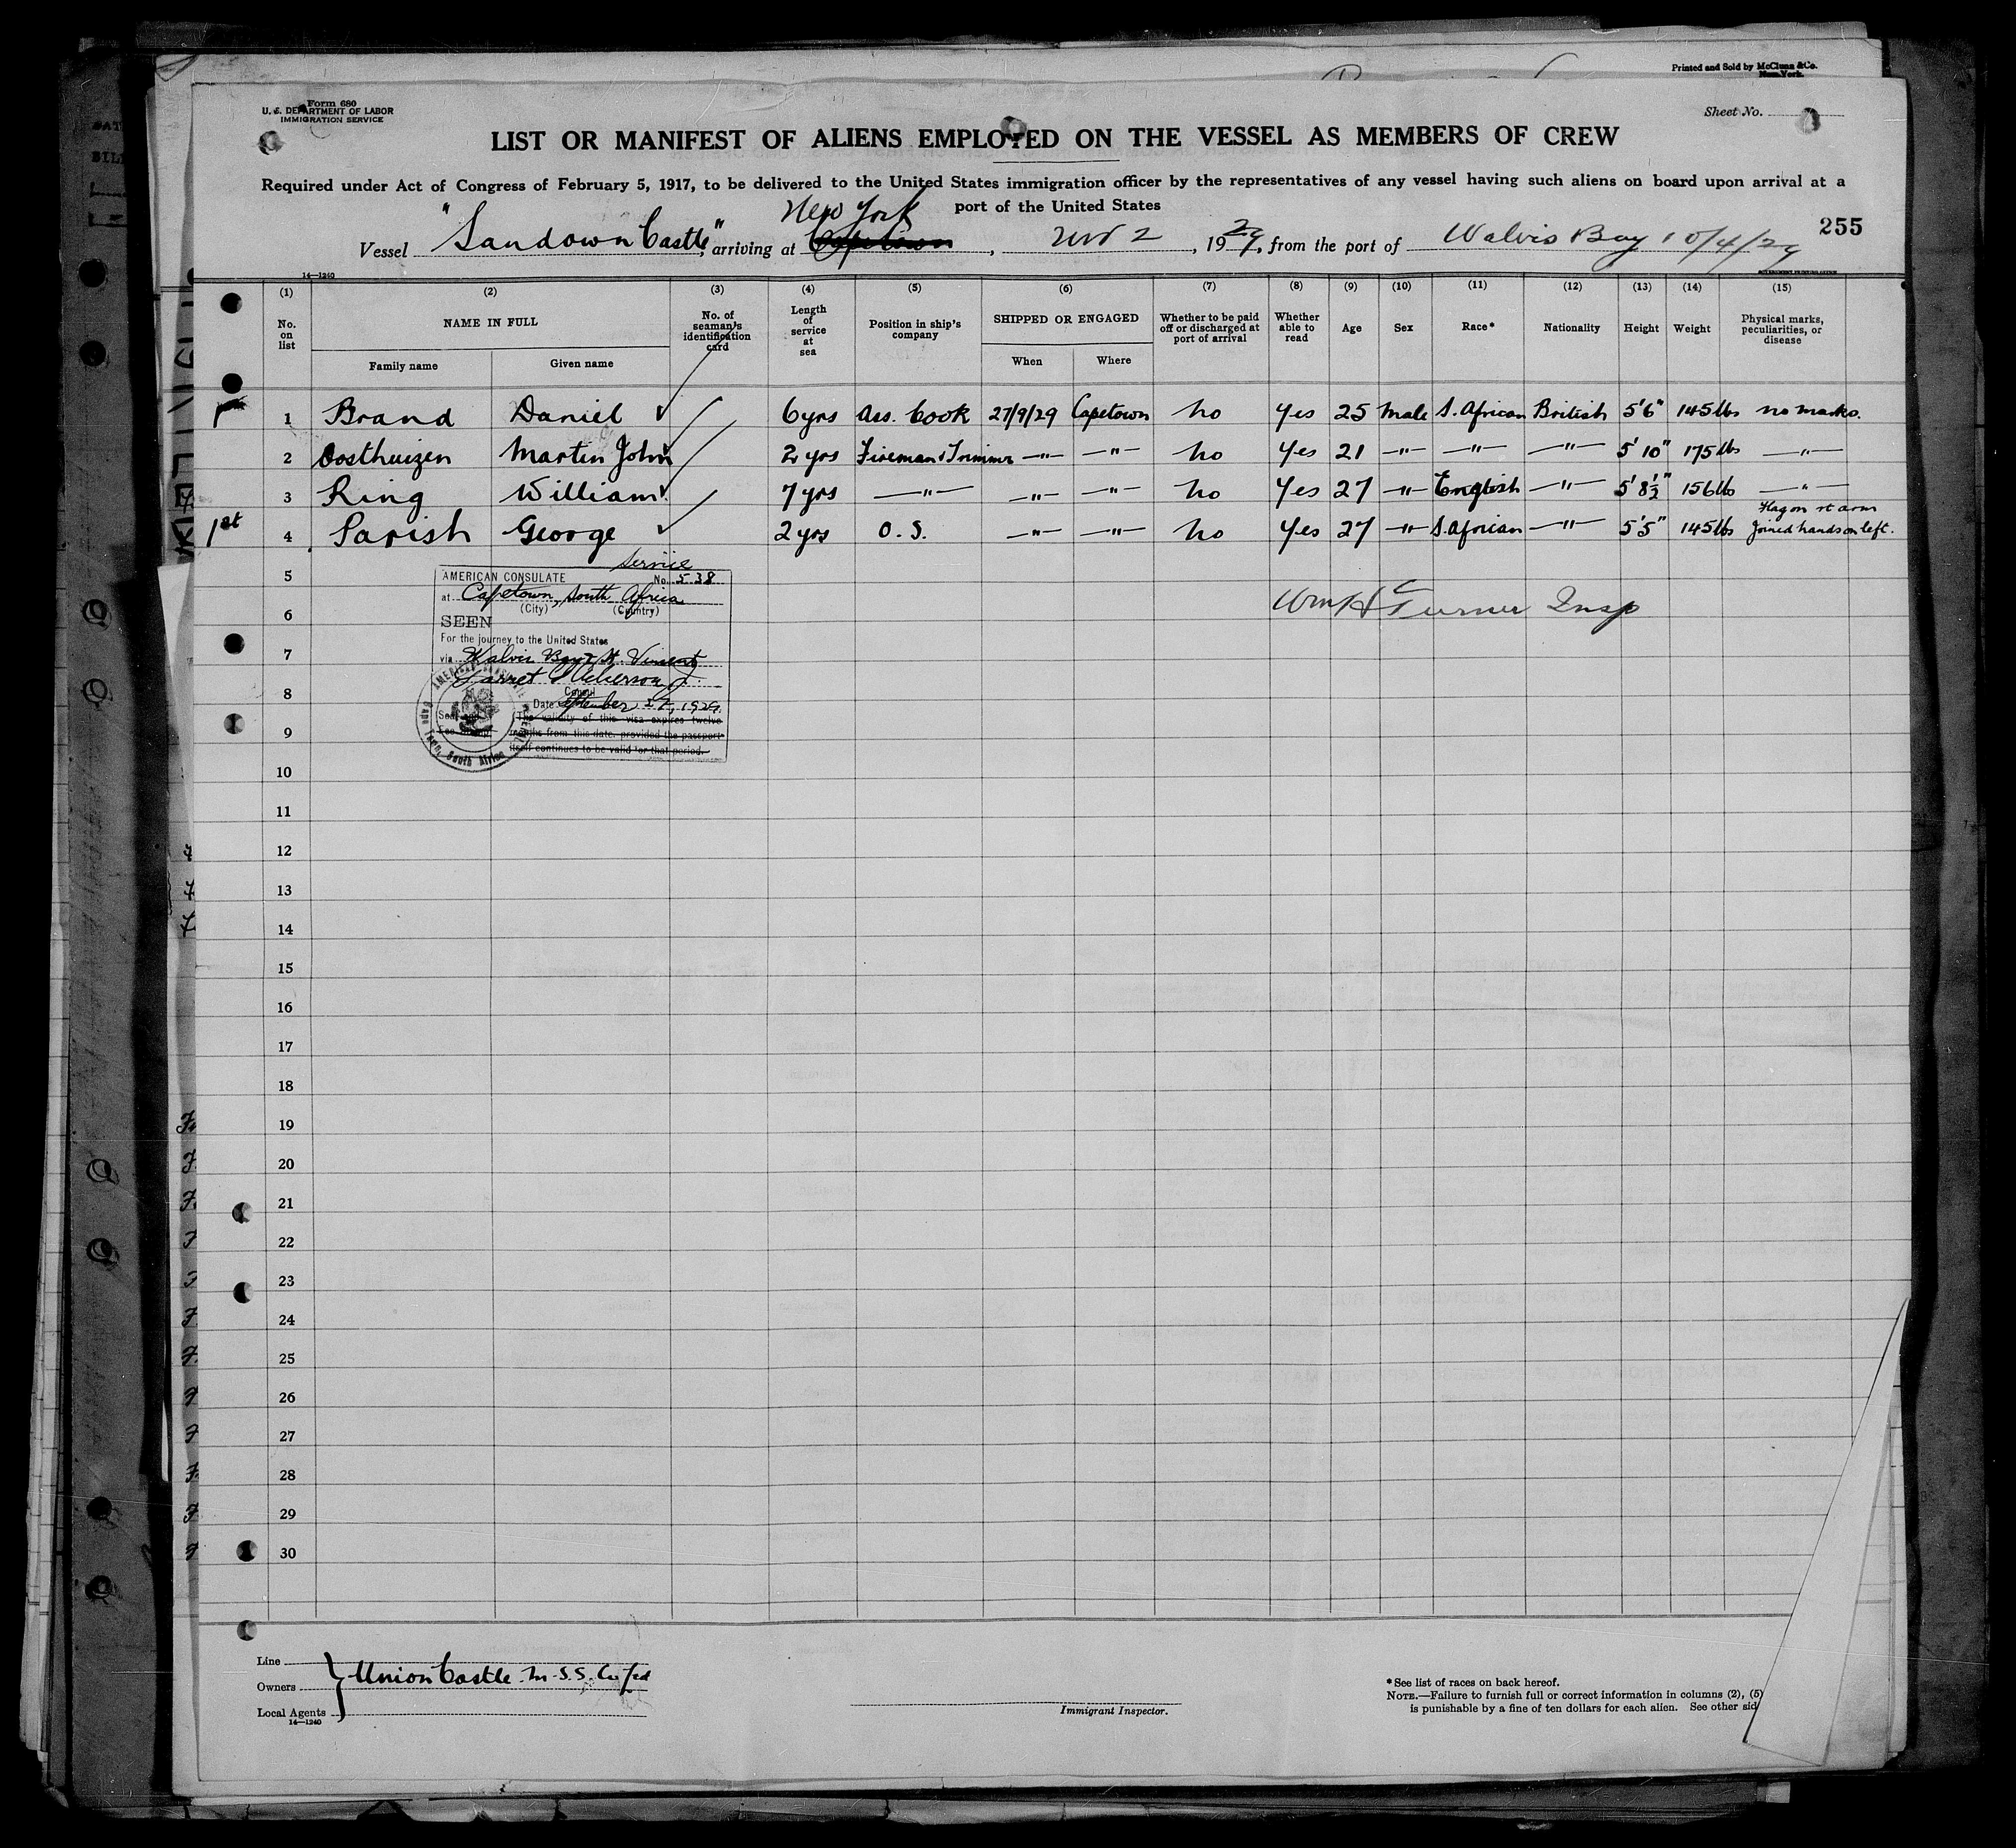 Printed and Sold by McClunn & Co.
New York.
Form 680
U. S. DEPARTMENT OF LABOR
IMMIGRATION SERVICE
Sheet No.
LIST OR MANIFEST OF ALIENS EMPLOYED ON THE VESSEL AS MEMBERS OF CREW
Required under Act of Congress of February 5, 1917, to be delivered to the United States immigration officer by the representatives of any vessel having such aliens on board upon arrival at a
port of the United States
New York
255
Vessel "Sandown Castle", arriving at Capetown, Nov 2, 1929, from the port of Walvis Bay 10/4/29
14—1240
GOVERNMENT PRINTING OFFICE
(1) (2) (3) (4) (5) (6) (7) (8) (9) (10) (11) (12) (13) (14) (15)
No. on list NAME IN FULL No. of seaman's identification card Length of service at sea Position in ship's company SHIPPED OR ENGAGED Whether to be paid off or discharged at port of arrival Whether able to read Age Sex Race* Nationality Height Weight Physical marks, peculiarities, or disease
Family name Given name When Where
1 Brand Daniel ✓ 6 yrs Ass. Cook 27/9/29 Capetown No Yes 25 Male S. African British 5'6" 145 lbs no marks.
2 Oosthuizen Martin John ✓ 2 yrs Fireman & Trimmer —"— —"— No Yes 21 —"— —"— —"— 5'10" 175 lbs —"—
3 Ring William ✓ 7 yrs —"— —"— —"— No Yes 27 —"— English —"— 5'8½" 156 lbs —"—
1st 4 Parish George ✓ 2 yrs O.S. —"— —"— No Yes 27 —"— S. African —"— 5'5" 145 lbs Flag on rt arm Joined hands on left.
5
6
7
8
9
10
11
12
13
14
15
16
17
18
19
20
21
22
23
24
25
26
27
28
29
30
Service
AMERICAN CONSULATE No. 538
at Capetown, South Africa
(City) (Country)
SEEN
For the journey to the United States
via Walvis Bay & St. Vincent
Consul
Date September 27, 1929.
The validity of this visa expires twelve
months from this date, provided the passport
itself continues to be valid for that period.
Cape Town, South Africa
Wm H Turner Insp
Line
Owners Union Castle M. S.S. Co Ltd
Local Agents
14—1240
Immigrant Inspector.
*See list of races on back hereof.
NOTE.—Failure to furnish full or correct information in columns (2), (5)
is punishable by a fine of ten dollars for each alien. See other sid